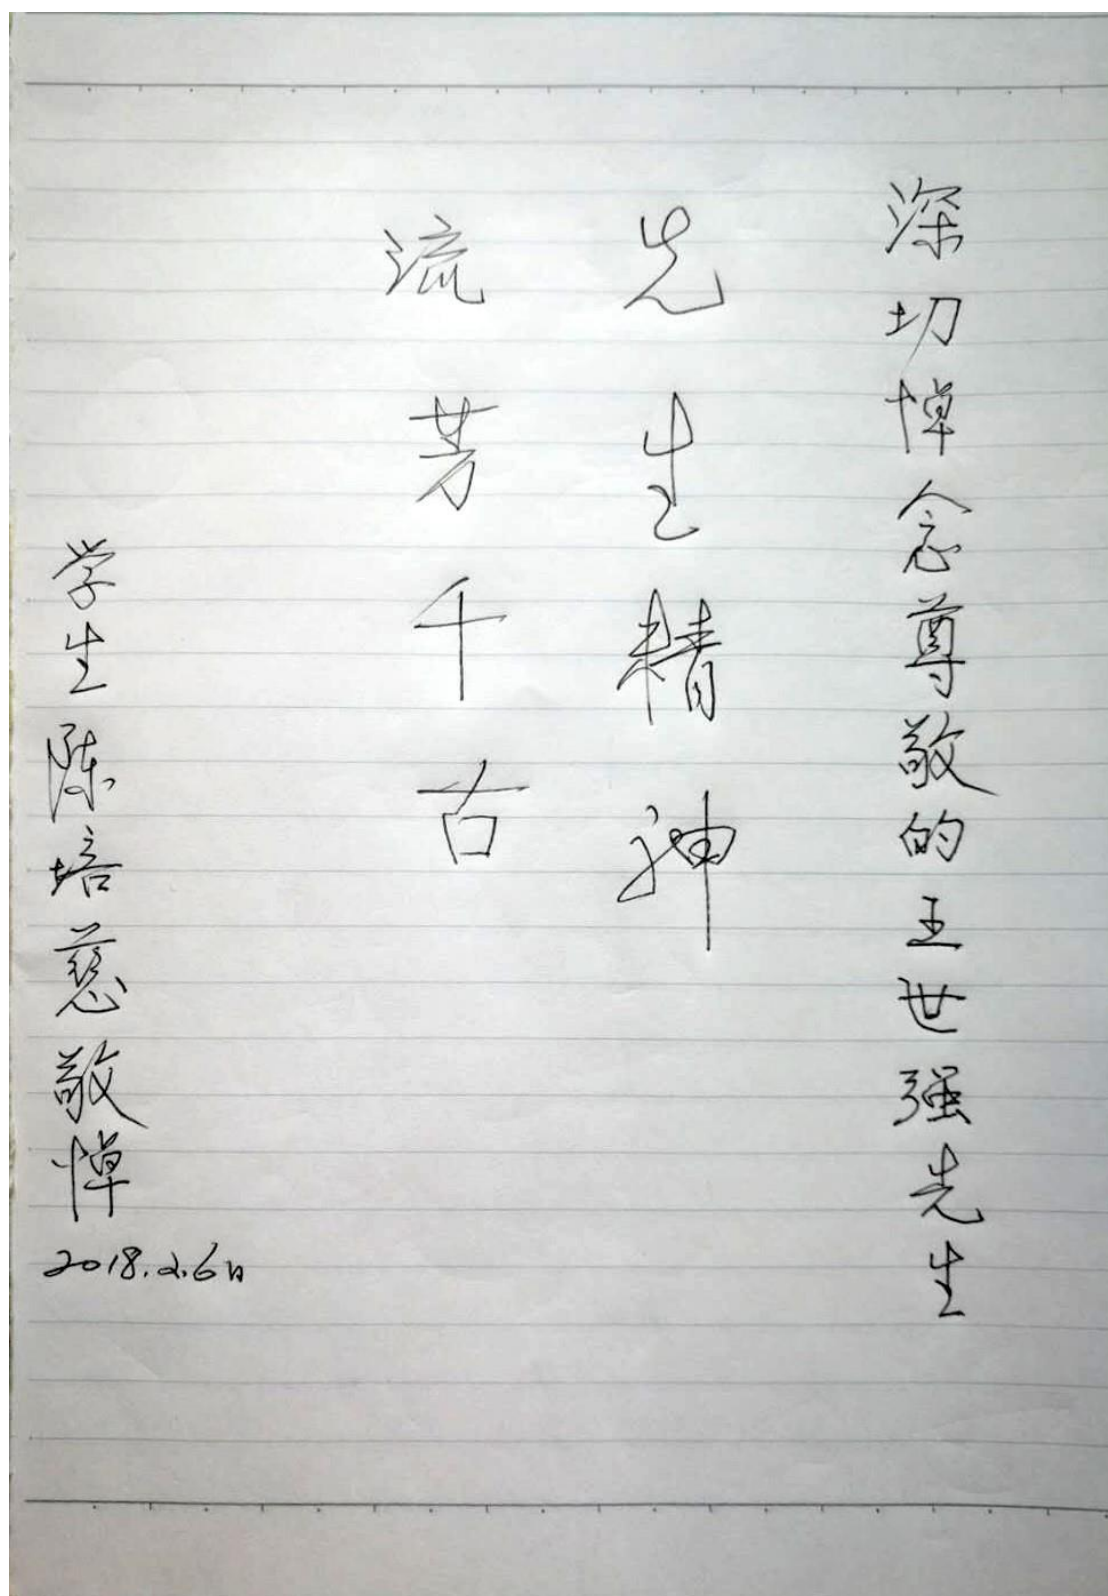 深切悼念尊敬的王世强先生
先生精神
流芳千古
学生陈培慈敬悼
2018.2.6日